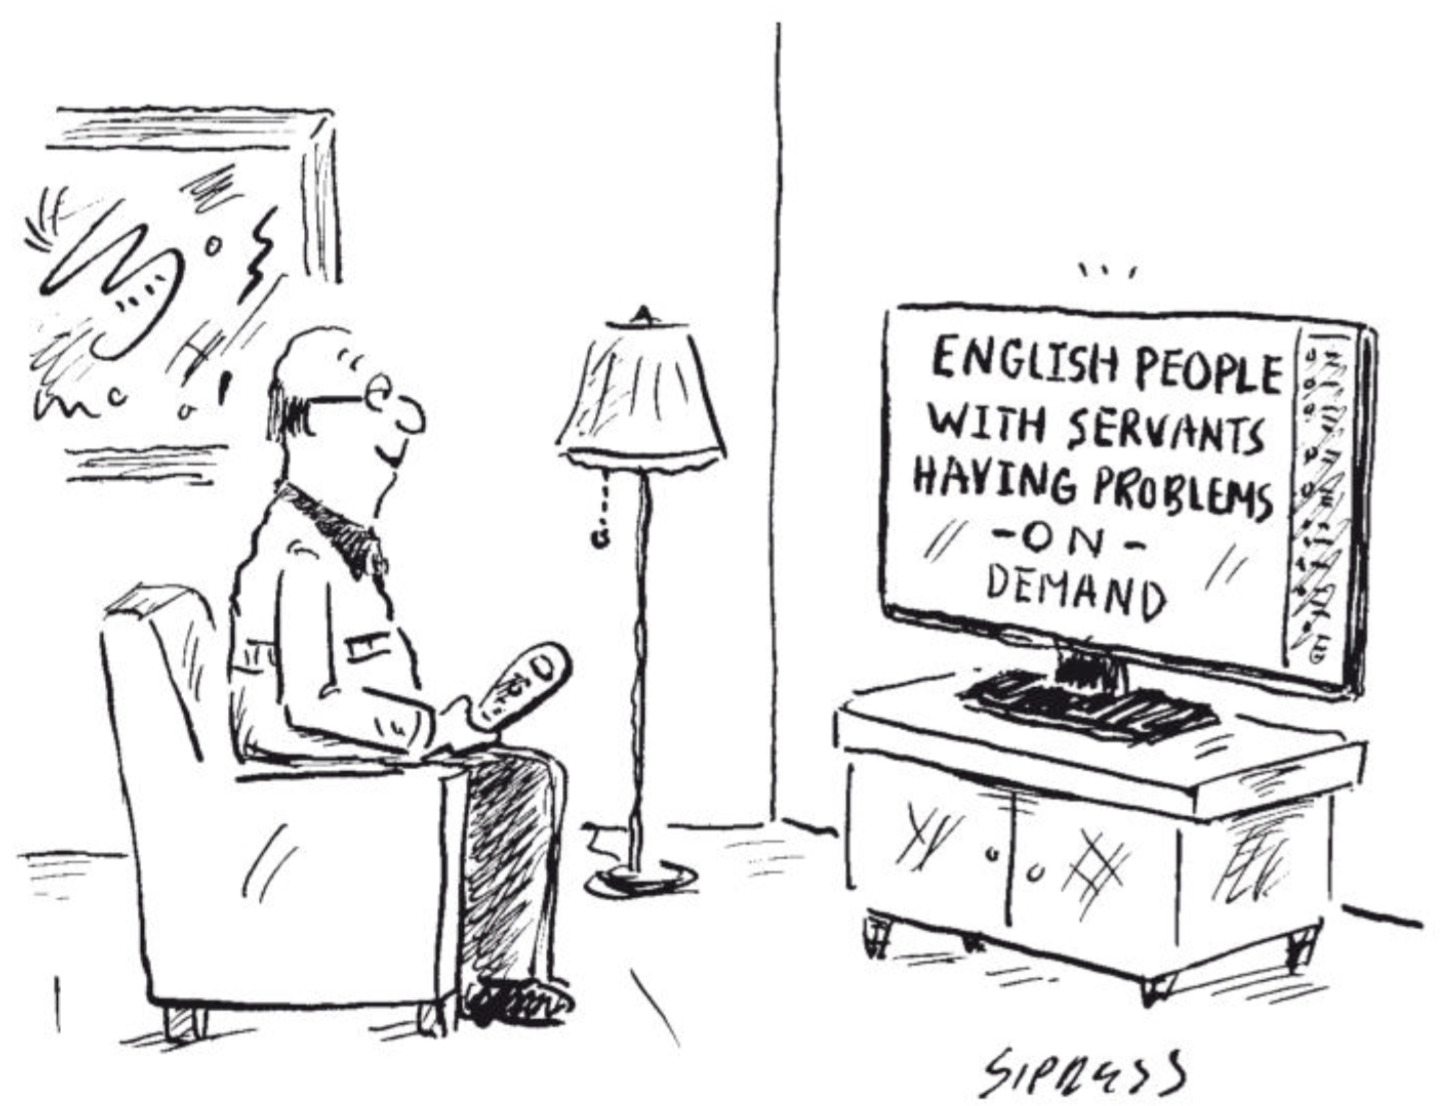 ENGLISH PEOPLE
WITH SERVANTS
HAVING PROBLEMS
-ON-
DEMAND
SIPRESS